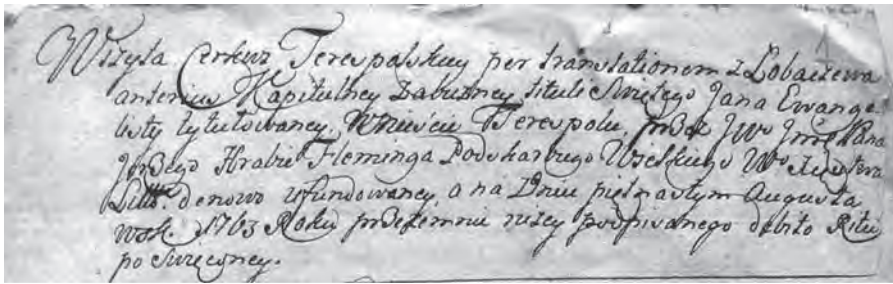 Wizyta Cerkwi Terespolskiey per translationem z Łobaczewa
anterius Kapitulney Zabużney tituli Swiętego Jana Ewange
listy tytułowaney, w Mieście Terespolu, przez JWo Jmć Pana
Jerzego Hrabie Fleminga Podskarbiego Wielkiego Wo Xięstwa
Litt. denowo ufundowaney, a na Dniu piętnastym Augusta
wsk. 1763 Roku przezemnie niżey podpisanego debito Ritu
poswięconey.